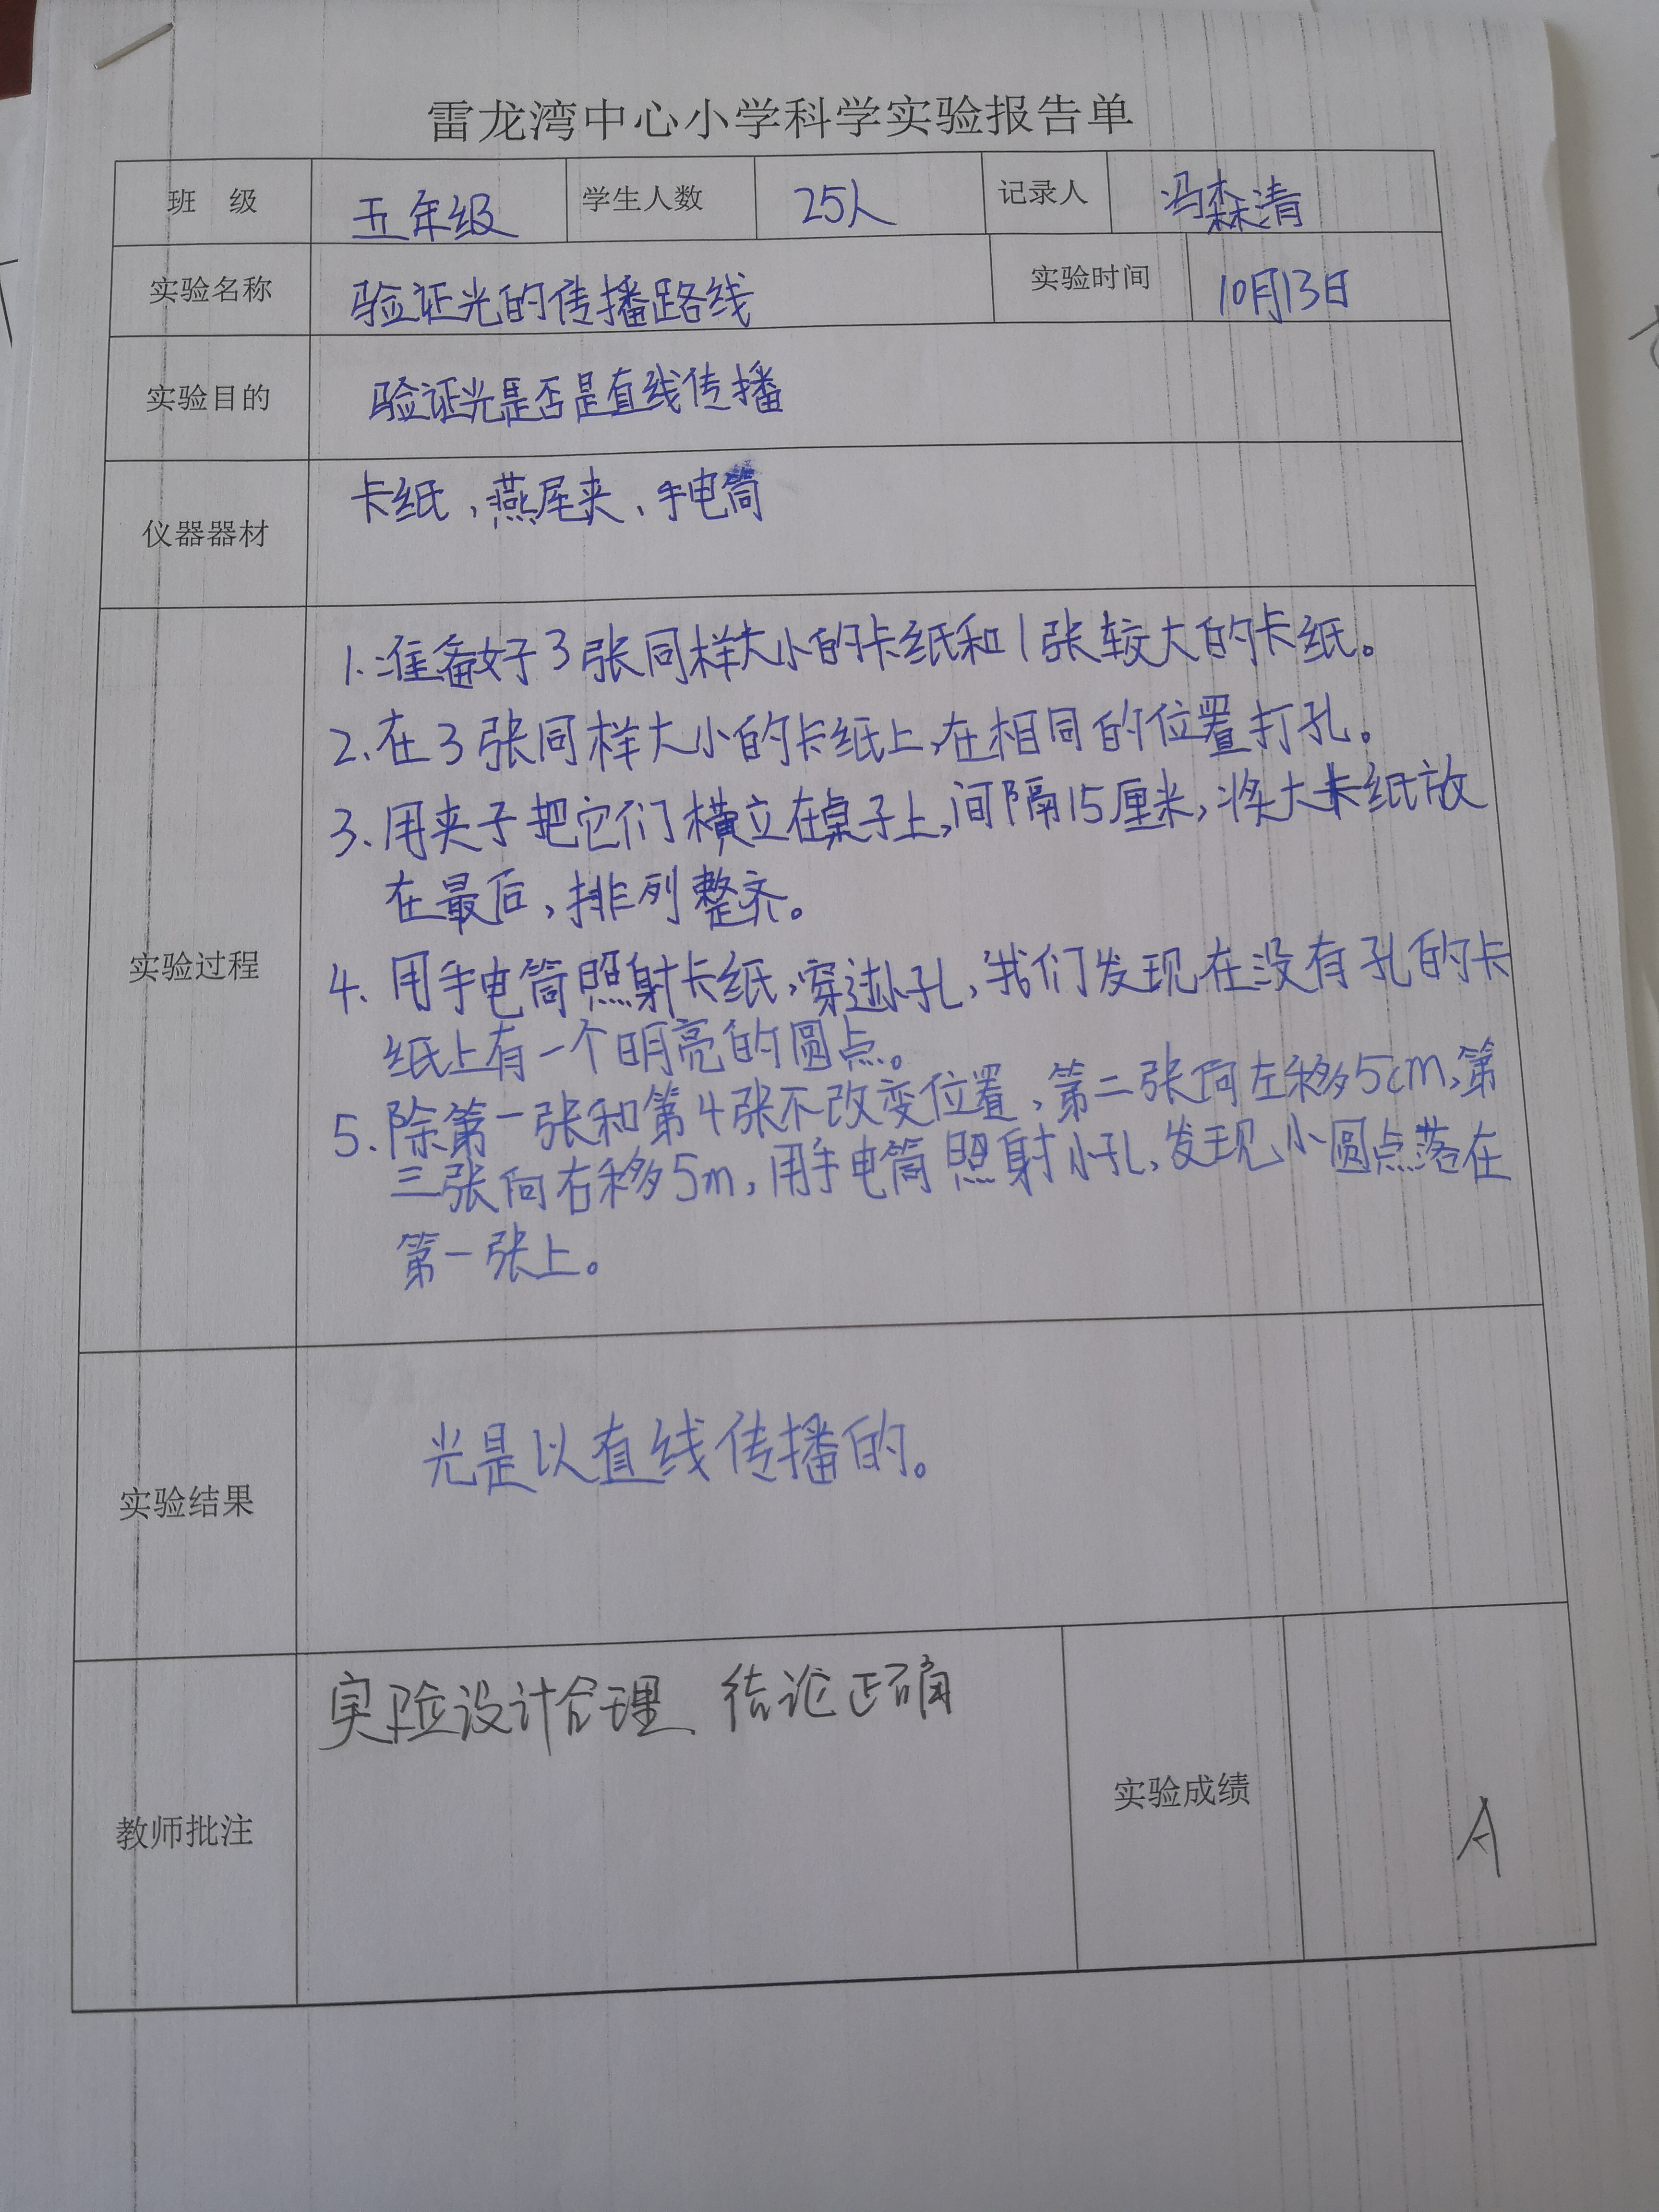 雷龙湾中心小学科学实验报告单
班 级 五年级 学生人数 25人 记录人 冯森清
实验名称 验证光的传播路线 实验时间 10月13日
实验目的 验证光是否是直线传播
仪器器材 卡纸、燕尾夹、手电筒
实验过程
1. 准备好3张同样大小的卡纸和1张较大的卡纸。
2、在3张同样大小的卡纸上,在相同的位置打孔。
3、用夹子把它们横立在桌子上,间隔15厘米,将大卡纸放
在最后,排列整齐。
4、用手电筒照射卡纸,穿过小孔,我们发现在没有孔的卡
纸上有一个明亮的圆点。
5、除第一张和第4张不改变位置,第二张向左移5cm,第
三张向右移5m,用手电筒照射小孔,发现小圆点落在
第一张上。
实验结果 光是以直线传播的。
教师批注 实验设计合理、结论正确
实验成绩 A